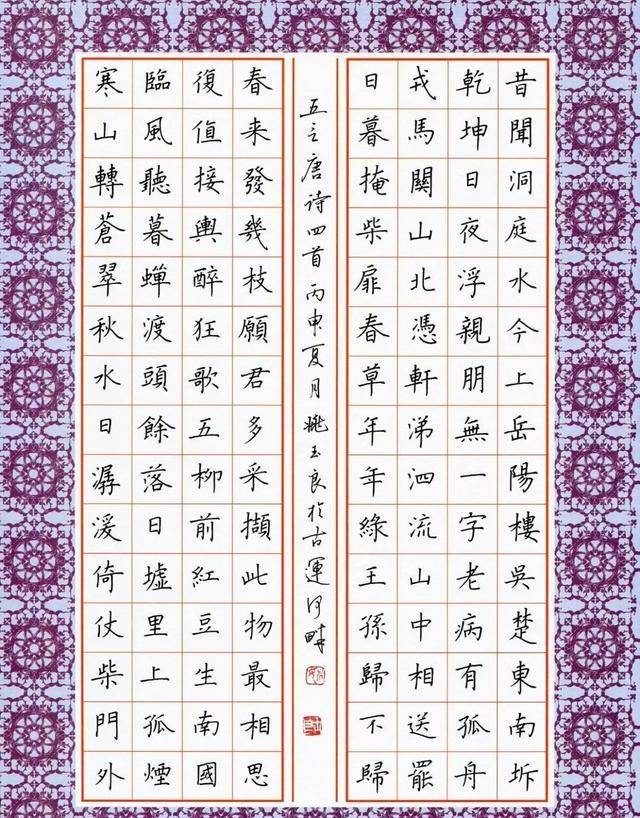 昔聞洞庭水今上岳陽樓吳楚東南坼
乾坤日夜浮親朋無一字老病有孤舟
戎馬關山北憑軒涕泗流山中相送罷
日暮掩柴扉春草年年綠王孫歸不歸
寒山轉蒼翠秋水日潺湲倚仗柴門外
臨風聽暮蟬渡頭餘落日墟里上孤煙
復值接輿醉狂歌五柳前紅豆生南國
春来發幾枝願君多采擷此物最相思
五言唐诗四首丙申夏月姚玉良於古運河畔